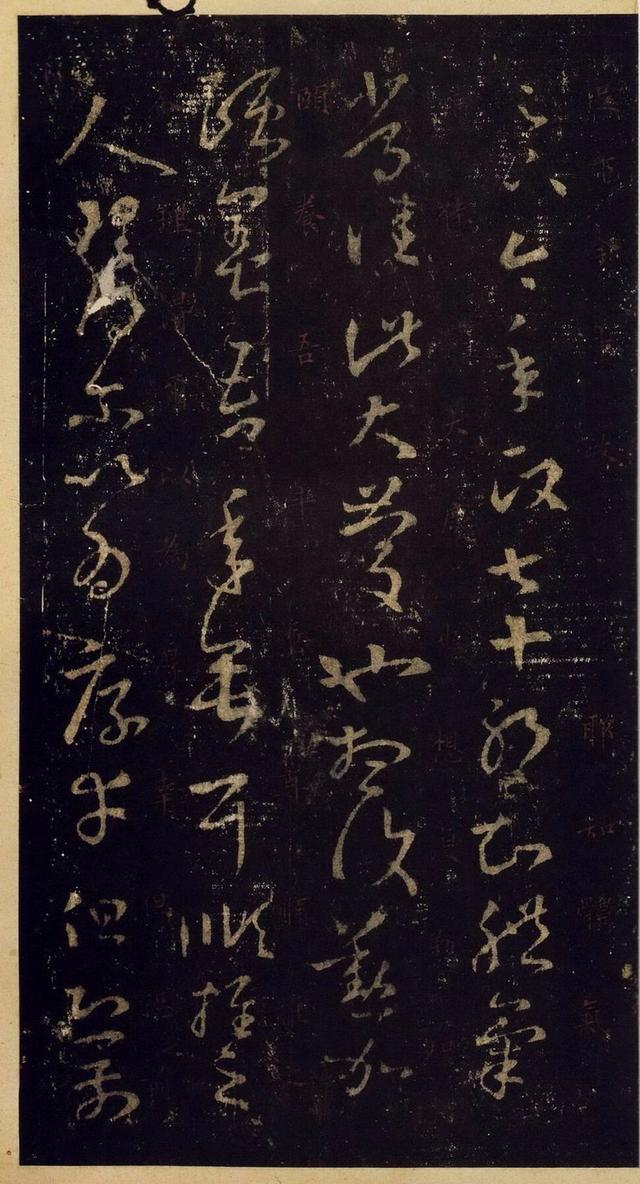 足下今年政七十耶知體氣
常佳此大慶也想復懃加
頤養吾年垂耳順推之
人理得尔以為厚幸但恐前